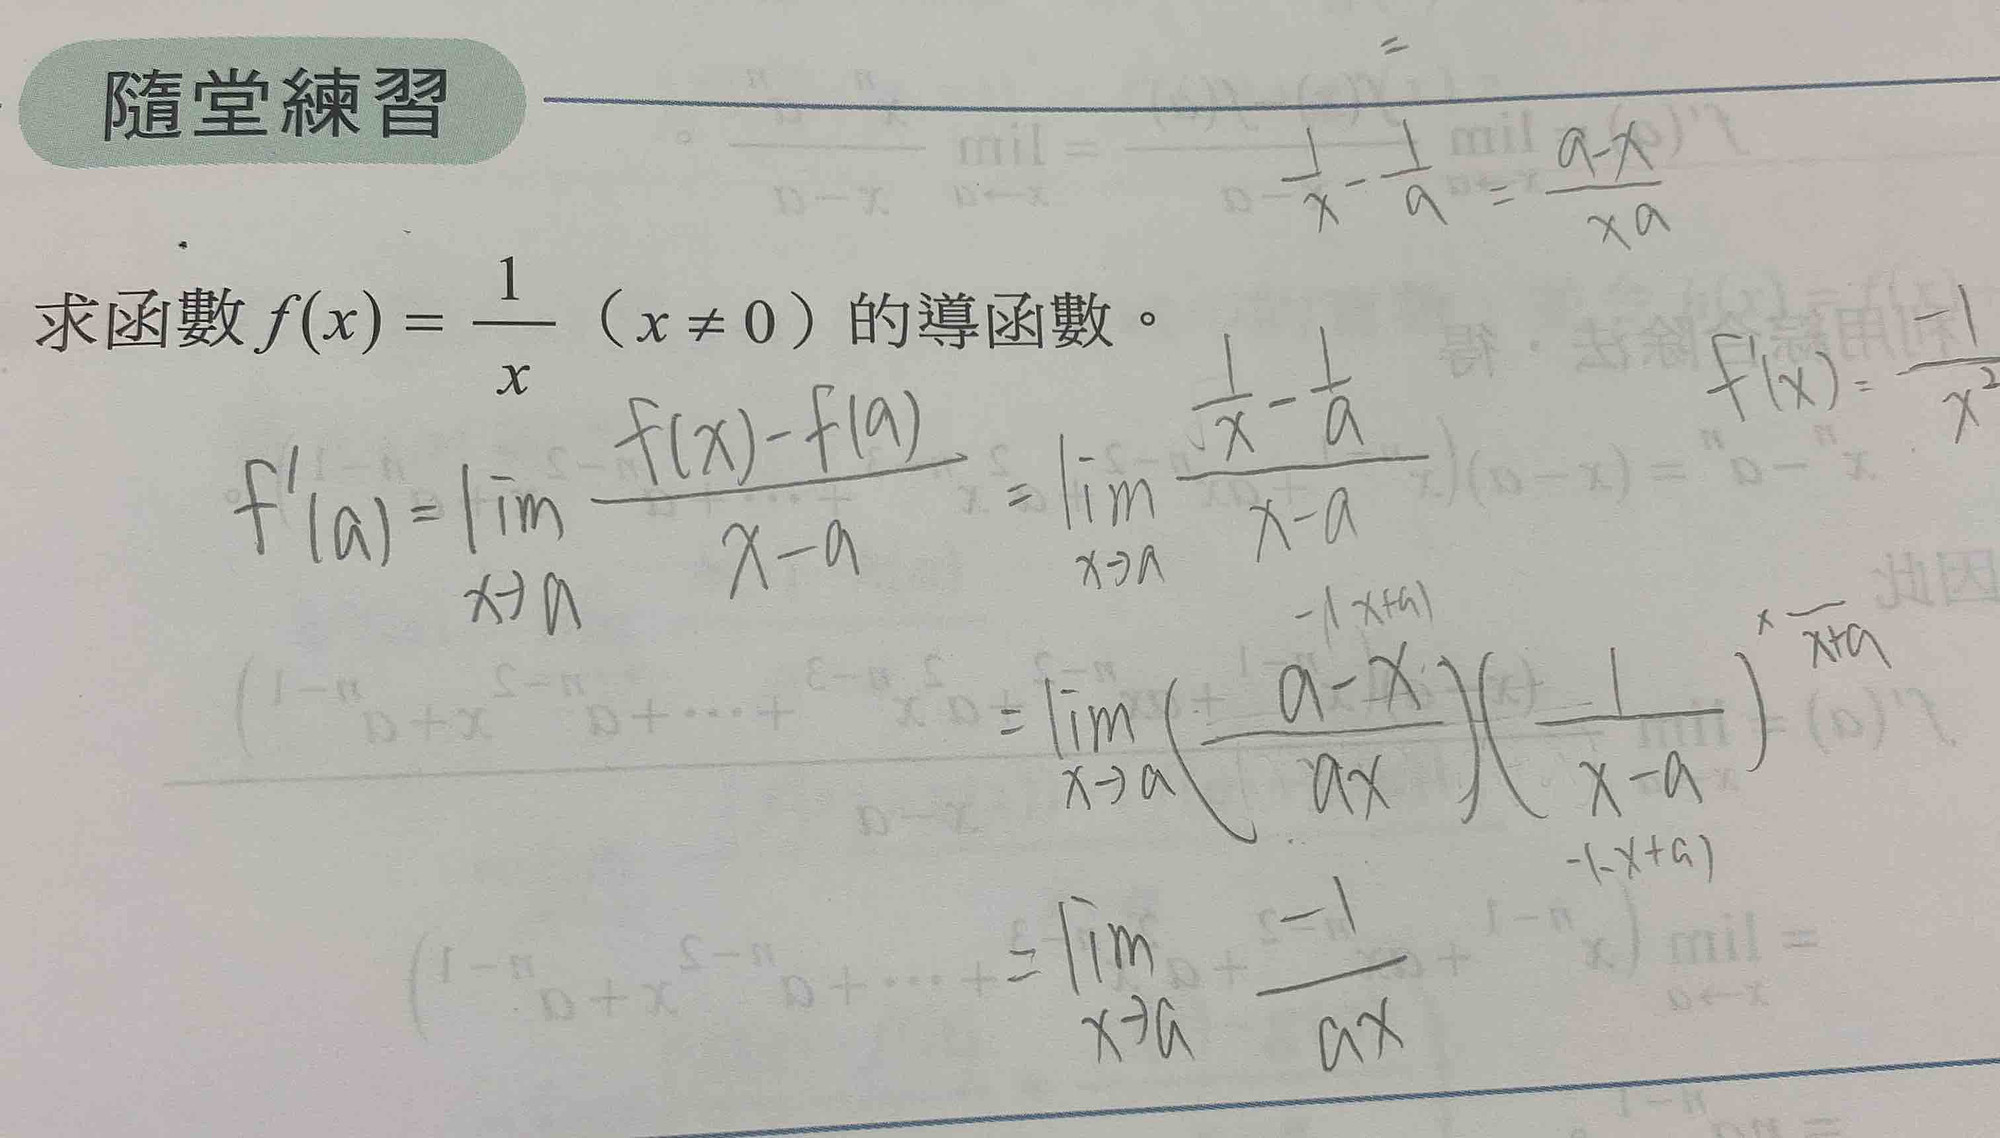 =
隨堂練習
1/x - 1/a = a-x/xa
求函數 f(x) = 1/x（x ≠ 0）的導函數。
f'(x) = -1/x²
f'(a) = lim x→a f(x)-f(a)/x-a = lim x→a 1/x - 1/a/x-a
-(-x+a) × —/x+a
= lim x→a (a-x/ax)(1/x-a)
-(-x+a)
= lim x→a -1/ax